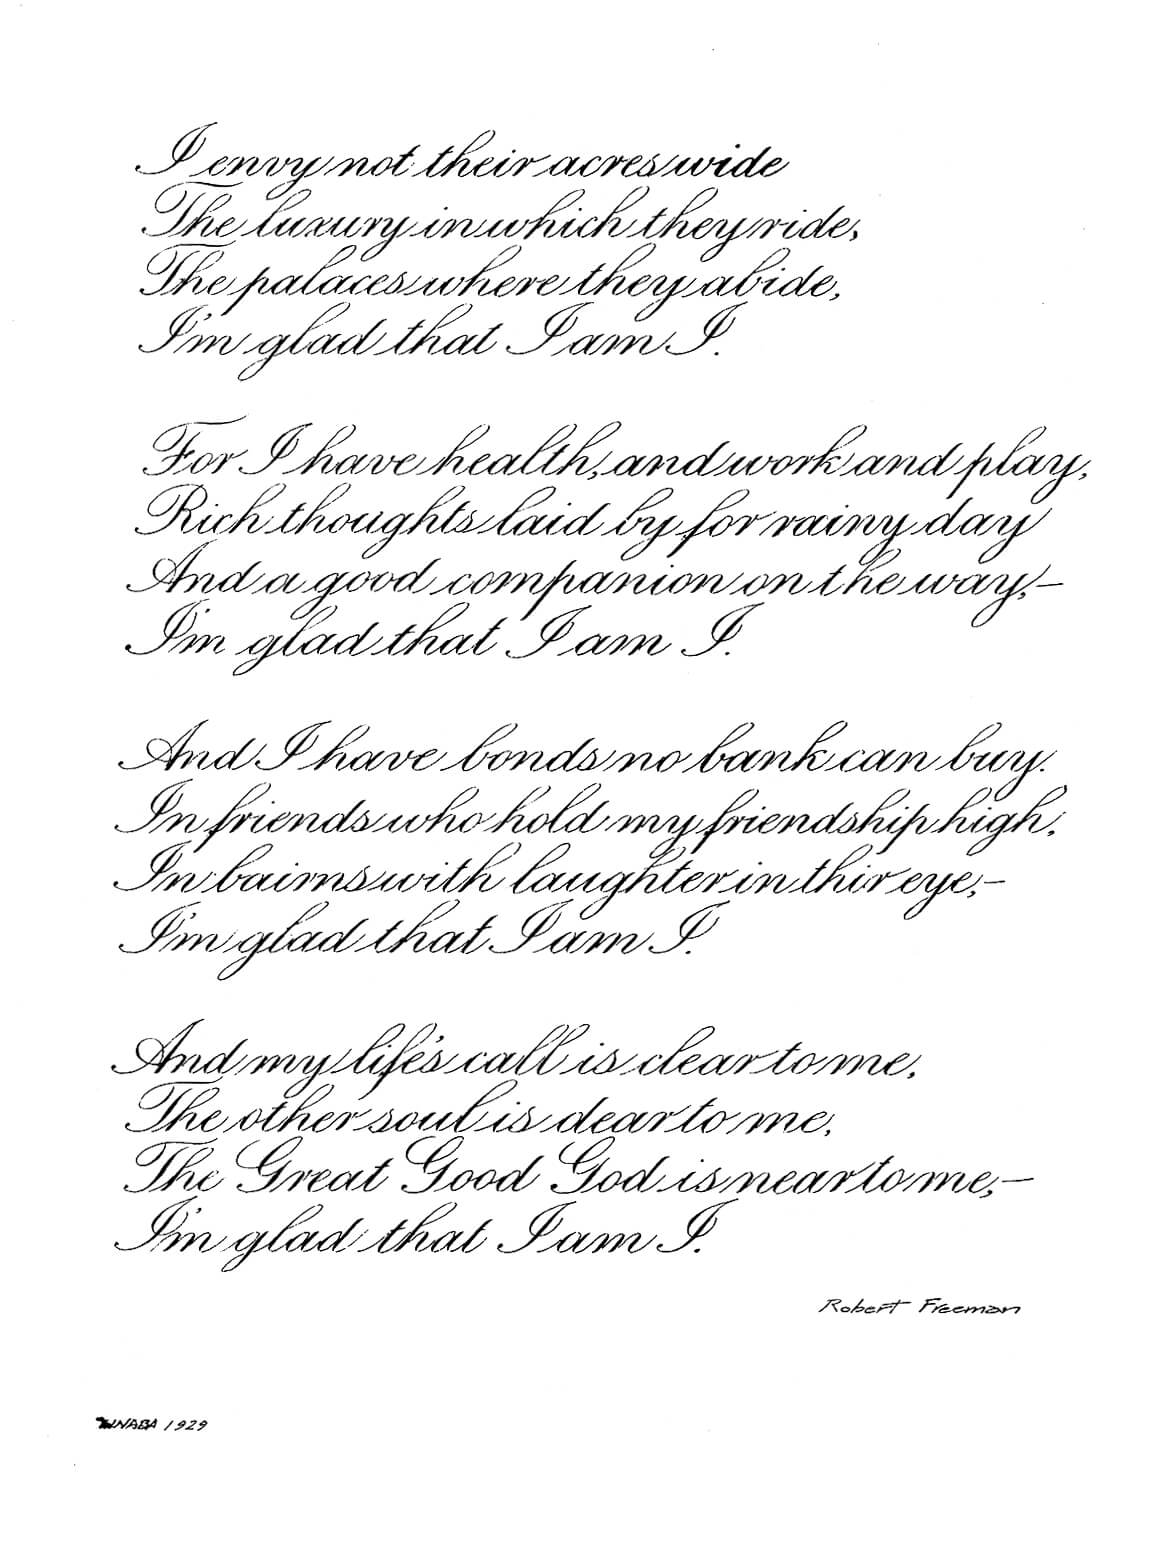 I envy not their acres wide
The luxury in which they ride,
The palaces where they abide,
I'm glad that I am I.
For I have health, and work and play,
Rich thoughts laid by for rainy day
And a good companion on the way,—
I'm glad that I am I.
And I have bonds no bank can buy.
In friends who hold my friendship high,
In bairns with laughter in thir eye,—
I'm glad that I am I.
And my life's call is clear to me,
The other soul is dear to me,
The Great Good God is near to me,—
I'm glad that I am I.
Robert Freeman
1929